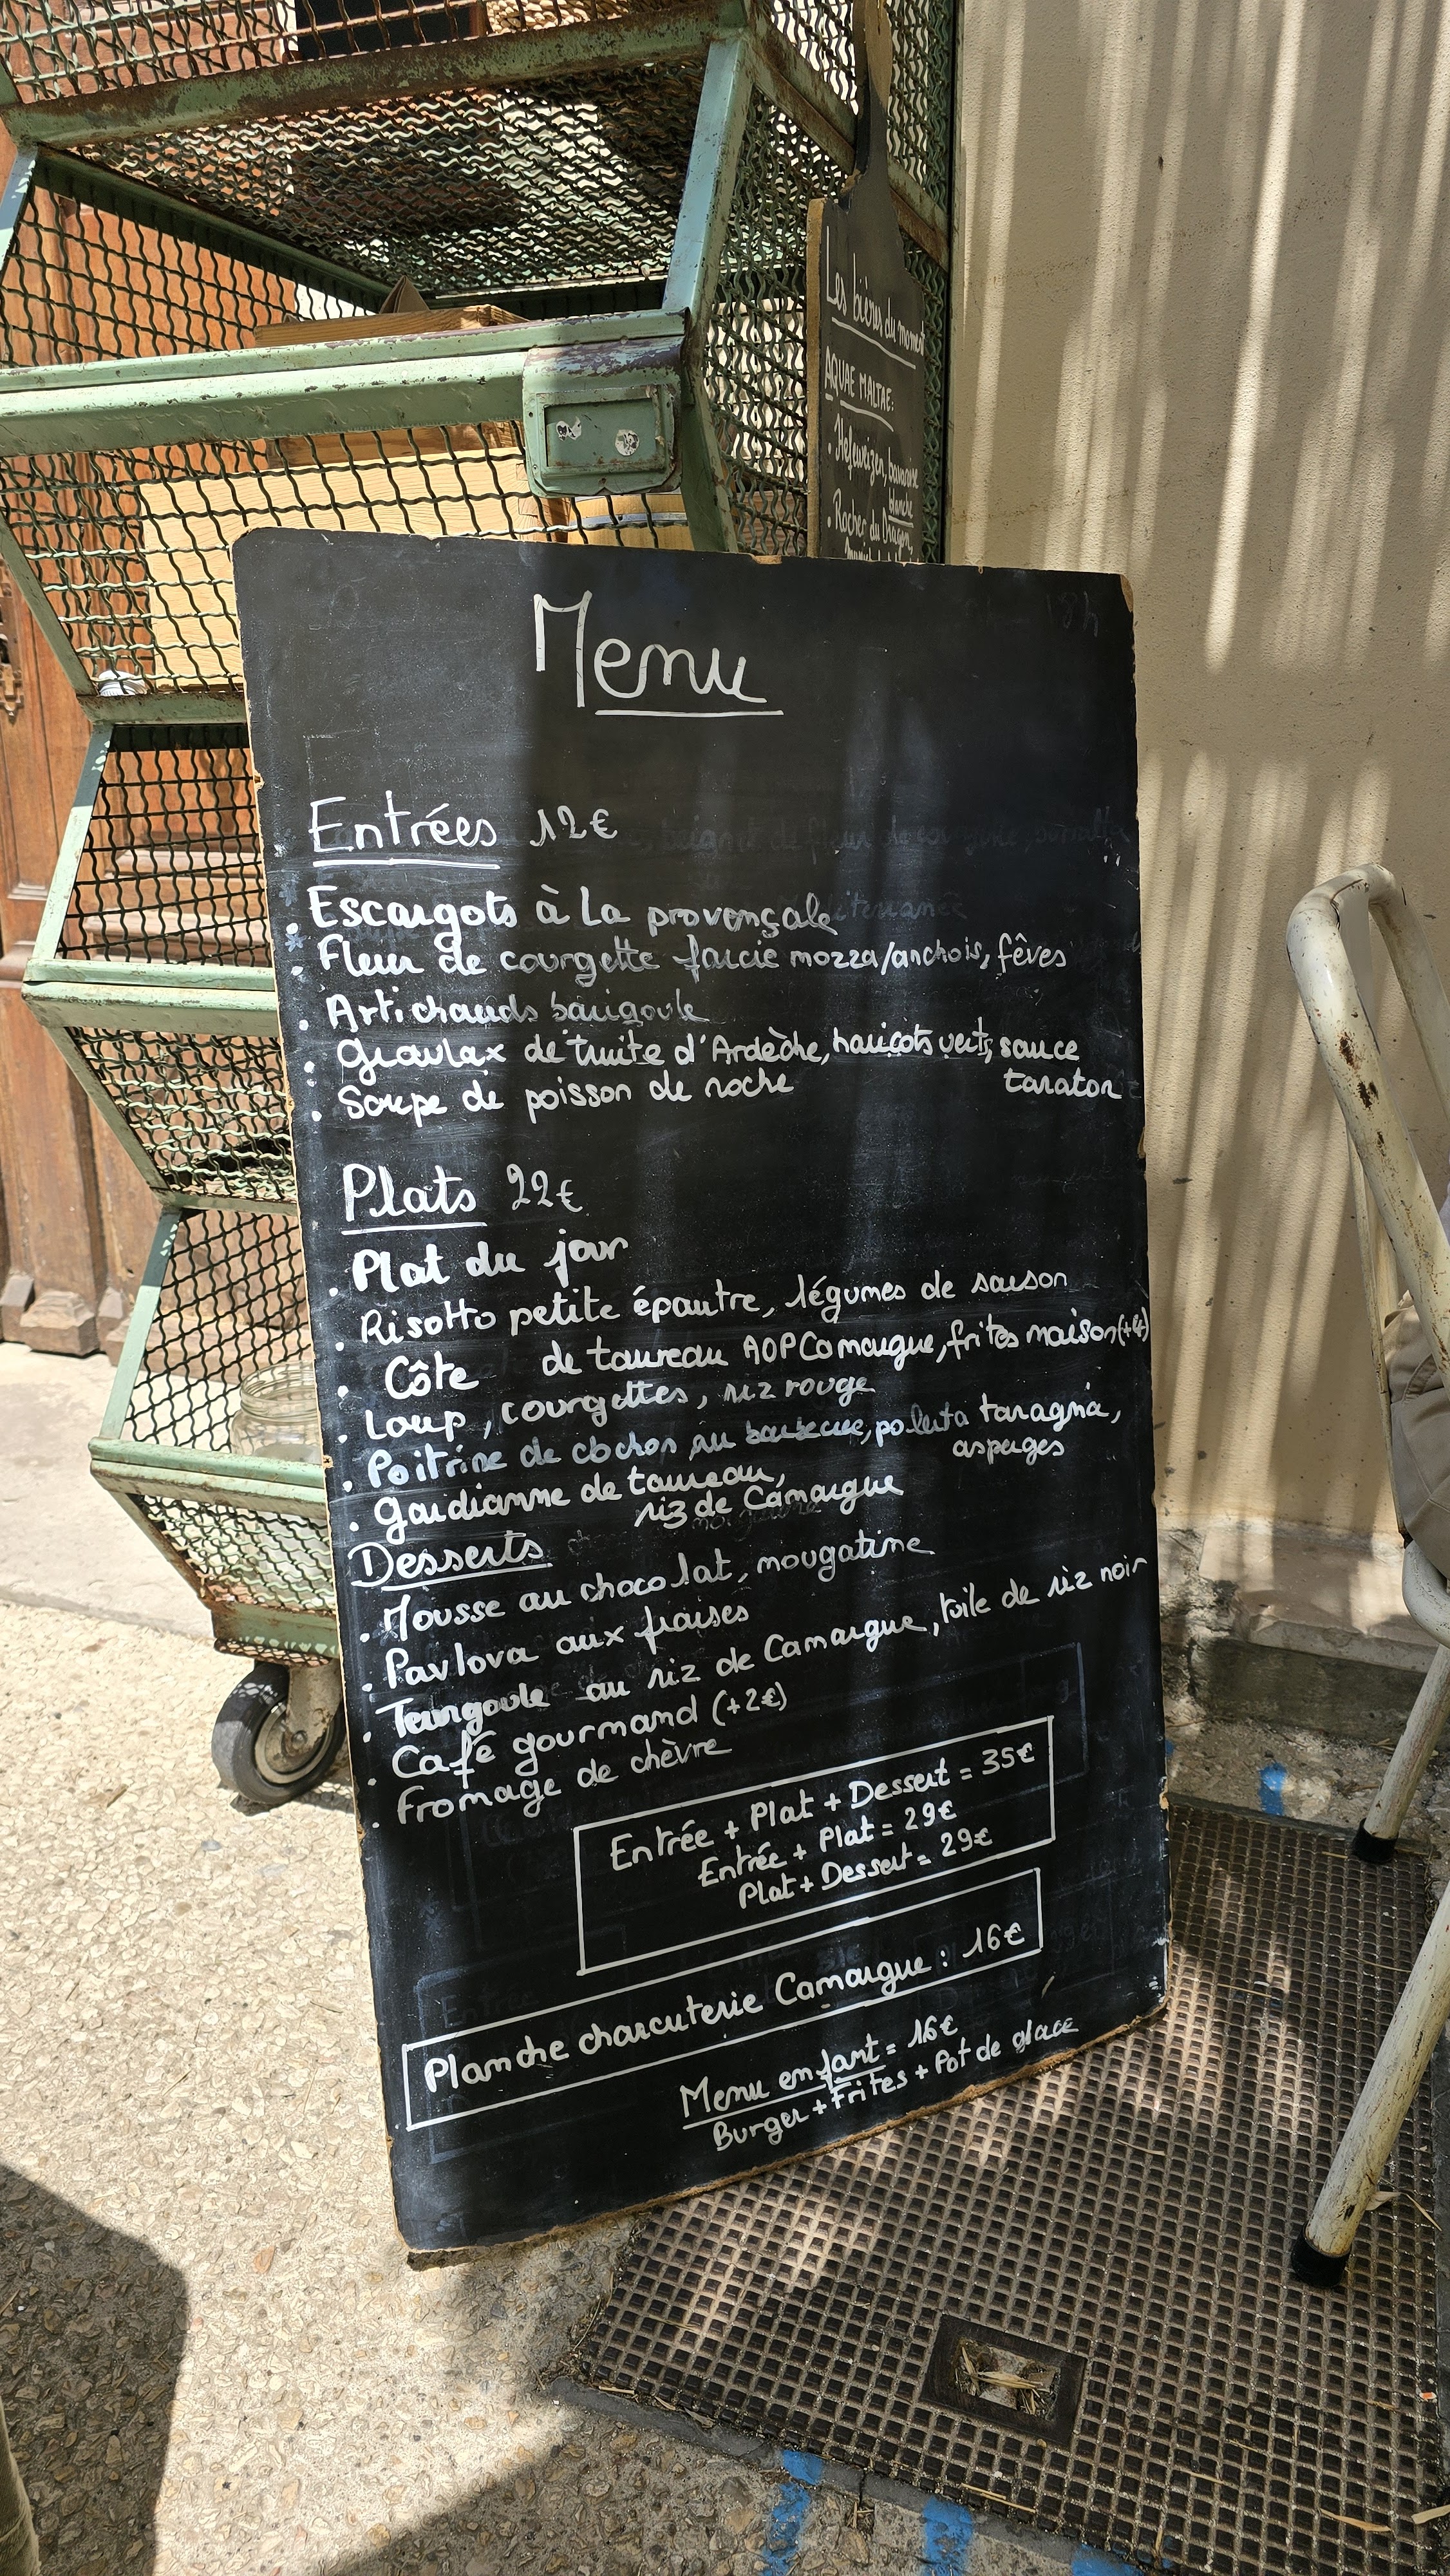 Les bières du moment
AQUAE MALTAE:
• Hefeweizen, bavaroise
blanche
• Rocher du Dragon,
Menu
Entrées 12€
• Escargots à La provençale
• Fleur de courgette farcie mozza/anchois, fêves
• Artichauds barigoule
• Gravlax de truite d'Ardèche, haricots verts, sauce
taraton
• Soupe de poisson de roche
Plats 22€
• Plat du jour
• Risotto petite épautre, légumes de saison
• Côte de taureau AOP Camargue, frites maison (+4)
• Loup, courgettes, riz rouge
• Poitrine de cochon au barbecue, polenta taragna,
asperges
• Gardianne de taureau,
riz de Camargue
Desserts
• Mousse au chocolat, nougatine
• Pavlova aux fraises
• Teurgoule au riz de Camargue, tuile de riz noir
• Café gourmand (+2€)
• Fromage de chèvre
Entrée + Plat + Dessert = 35€
Entrée + Plat = 29€
Plat + Dessert = 29€
Planche charcuterie Camargue : 16€
Menu enfant = 16€
Burger + Frites + Pot de glace